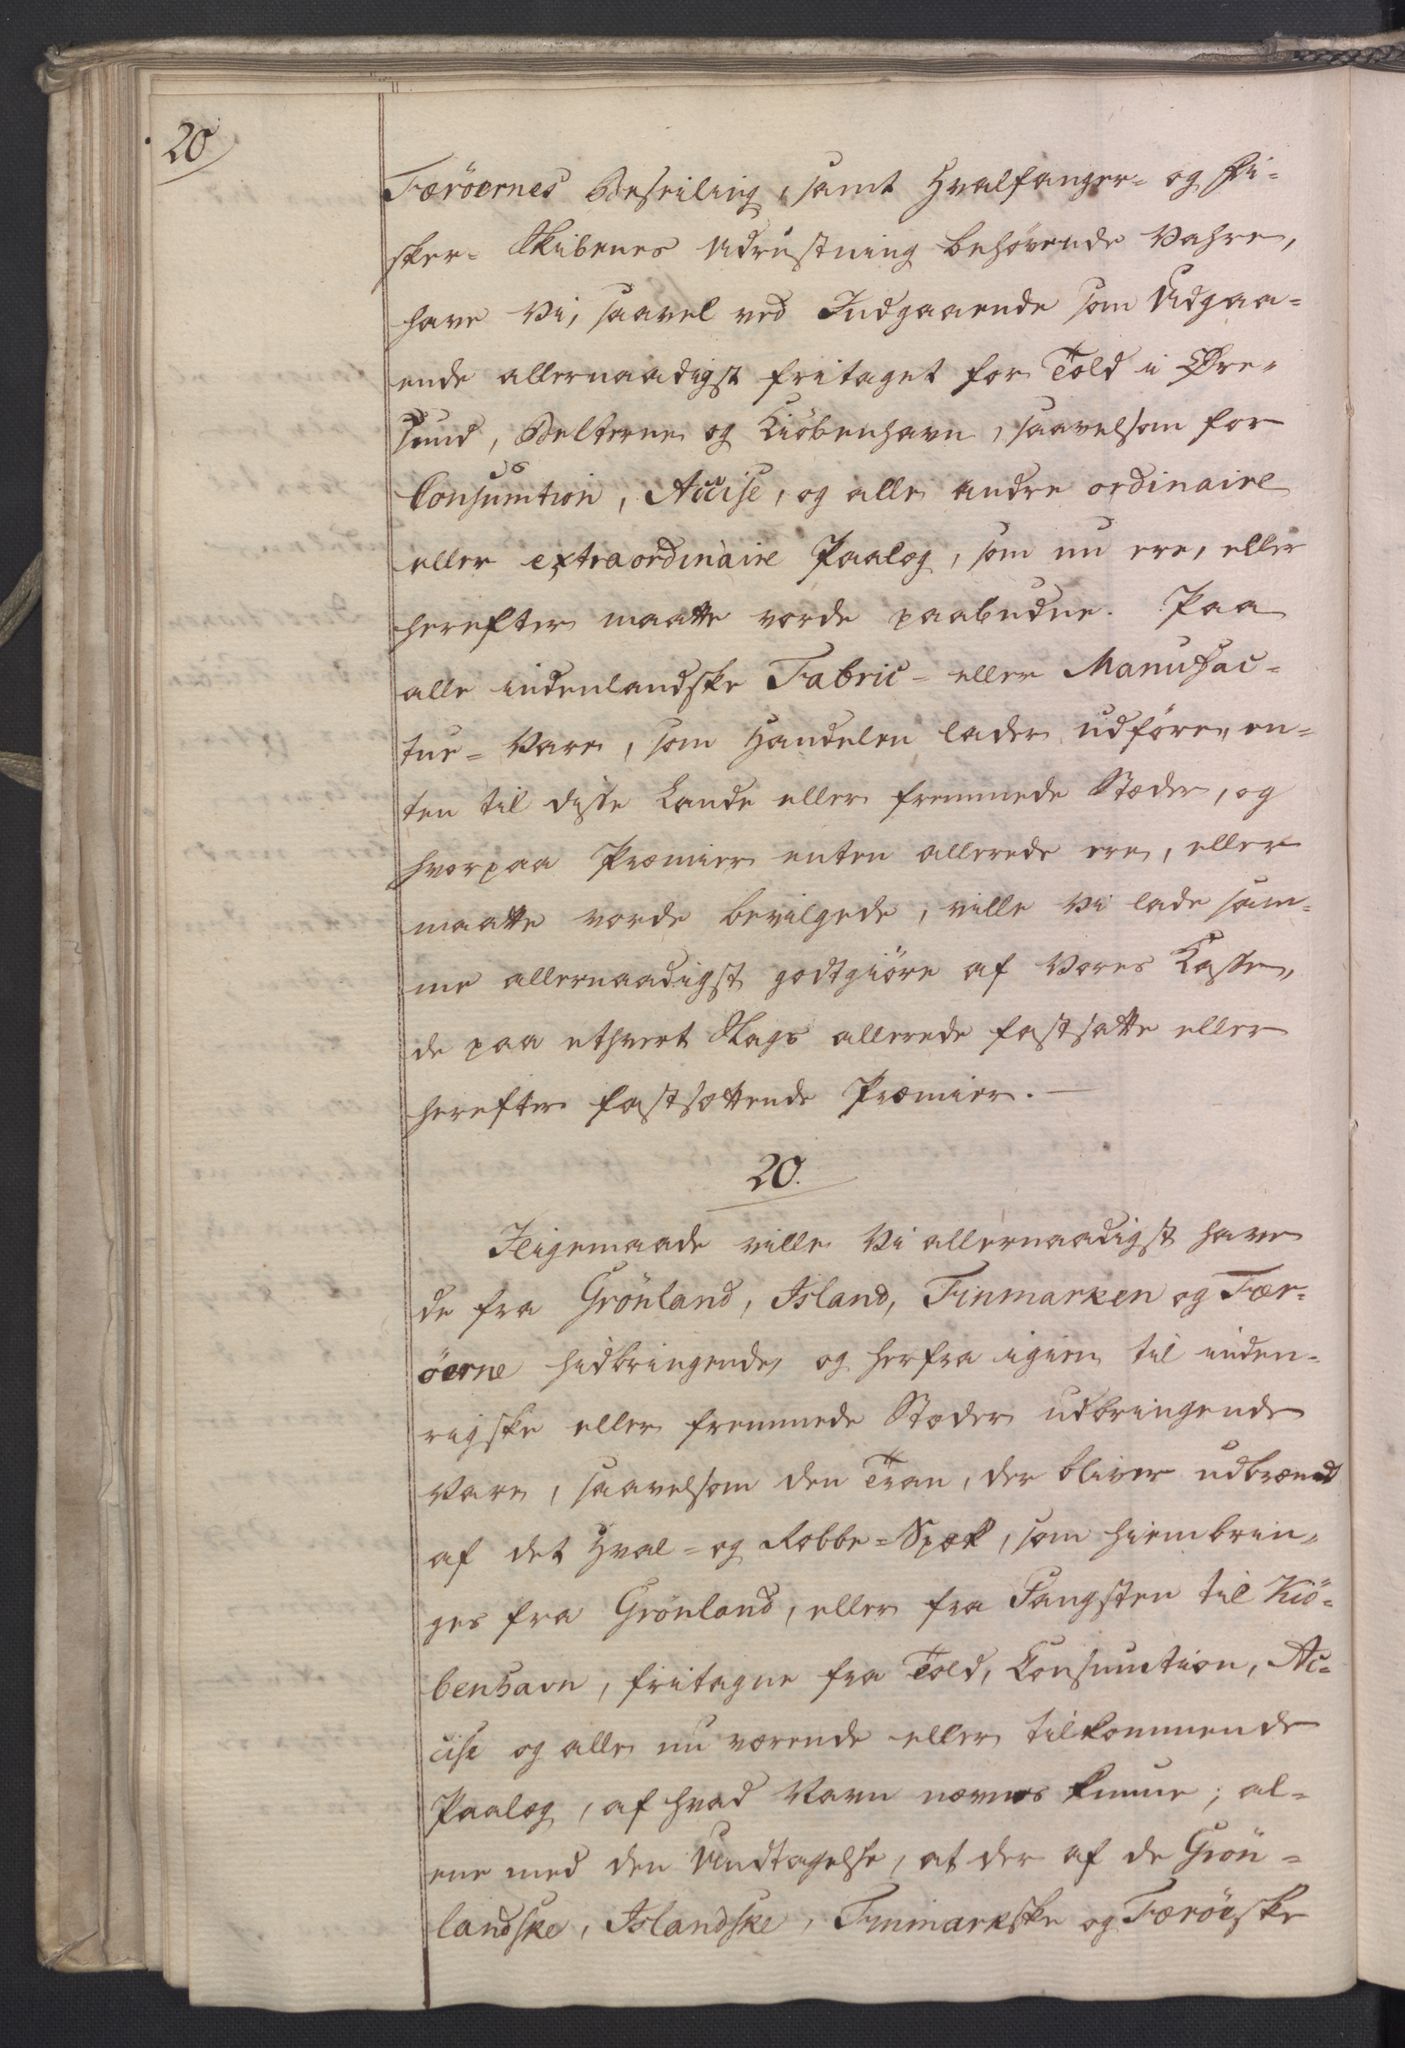 20
Færöernes Beseiling, samt Hvalfanger- og Fi-
sker- Skibenes Udrustning behövende Vahre,
have Vi, saavel ved Indgaaende som Udgaa-
ende allernaadigst fritaget for Told i Öre-
sund, Belterne og Kiöbenhavn, saavelsom for
Consumtion, Accise, og alle andre ordinaire
eller extraordinaire Paalæg, som nu ere, eller
herefter maatte vorde paabudne. Paa
alle indenlandske Fabric- eller Manufac-
tur- Vare, som Handelen lader udföre, en-
ten til disse Lande eller fremmede Stæder, og
hvorpaa Præmier enten allerede ere, eller
maatte vorde bevilgede, ville Vi lade sam-
me allernaadigst godtgiöre af Vores Casse,
de paa ethvert Slags allerede fastsatte eller
herefter fastsættende Præmier. —
20.
Ligemaade ville Vi allernaadigst have
de fra Grönland, Island, Finmarken og Fær-
öerne hidbringende, og herfra igien til inden-
rigske eller fremmede Stæder udbringende
Vare, saavelsom den Tran, der bliver udbrændt
af det Hval- og Robbe-Spæk, som hiembrin-
ges fra Grönland, eller fra Fangsten til Kiö-
benhavn, fritagne fra Told, Consumtion, Ac-
cise og alle nu værende eller tilkommende
Paalæg, af hvad Navn nævnes kunne; al-
ene med den Undtagelse, at der af de Grön-
landske, Islandske, Finmarkske og Færöeske